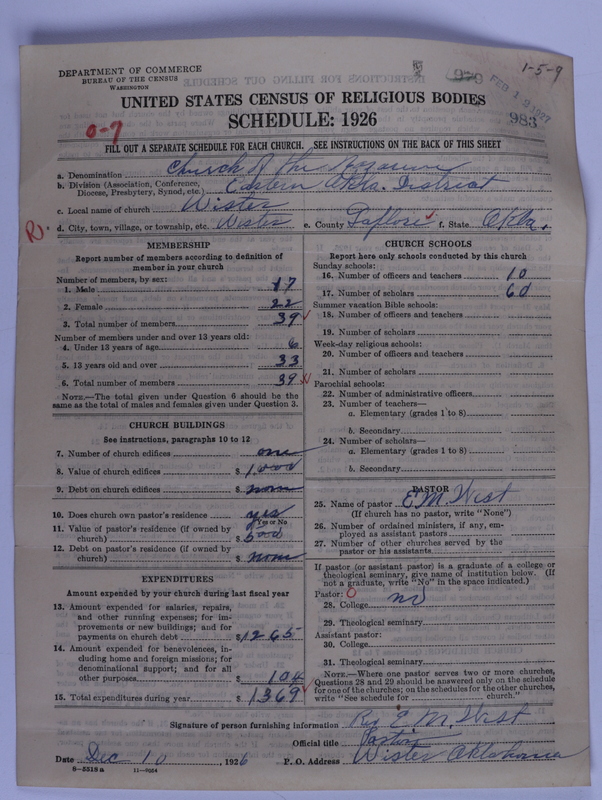 DEPARTMENT OF COMMERCE
BUREAU OF THE CENSUS
WASHINGTON
1-5-9
FEB 19 1927
983
UNITED STATES CENSUS OF RELIGIOUS BODIES
SCHEDULE: 1926
0-7
FILL OUT A SEPARATE SCHEDULE FOR EACH CHURCH. SEE INSTRUCTIONS ON THE BACK OF THIS SHEET
a. Denomination Church of the Nazarene
b. Division (Association, Conference, Diocese, Presbytery, Synod, etc.) Eastern Okla. District
c. Local name of church Wister
d. City, town, village, or township, etc. Wister e. County Laflore f. State Okla.
R.
MEMBERSHIP
Report number of members according to definition of
member in your church
Number of members, by sex:
1. Male 17
2. Female 22
3. Total number of members 39
Number of members under and over 13 years old:
4. Under 13 years of age 6
5. 13 years old and over 33
6. Total number of members 39
NOTE.—The total given under Question 6 should be the
same as the total of males and females given under Question 3.
CHURCH BUILDINGS
See instructions, paragraphs 10 to 12
7. Number of church edifices one
8. Value of church edifices $ 1000
9. Debt on church edifices $ none
10. Does church own pastor's residence yes
Yes or No
11. Value of pastor's residence (if owned by
church) $ 500
12. Debt on pastor's residence (if owned by
church) $ none
EXPENDITURES
Amount expended by your church during last fiscal year
13. Amount expended for salaries, repairs,
and other running expenses; for im-
provements or new buildings; and for
payments on church debt $ 1265
14. Amount expended for benevolences, in-
cluding home and foreign missions; for
denominational support; and for all
other purposes $ 104
15. Total expenditures during year $ 1369
CHURCH SCHOOLS
Report here only schools conducted by this church
Sunday schools:
16. Number of officers and teachers 10
17. Number of scholars 60
Summer vacation Bible schools:
18. Number of officers and teachers
19. Number of scholars
Week-day religious schools:
20. Number of officers and teachers
21. Number of scholars
Parochial schools:
22. Number of administrative officers
23. Number of teachers—
a. Elementary (grades 1 to 8)
b. Secondary
24. Number of scholars—
a. Elementary (grades 1 to 8)
b. Secondary
PASTOR
25. Name of pastor E M West
(If church has no pastor, write "None")
26. Number of ordained ministers, if any, em-
ployed as assistant pastors
27. Number of other churches served by the
pastor or his assistants
If pastor (or assistant pastor) is a graduate of a college or
theological seminary, give name of institution below. (If
not a graduate, write "No" in the space indicated.)
Pastor: 0
28. College no
29. Theological seminary
Assistant pastor:
30. College
31. Theological seminary
NOTE.—Where one pastor serves two or more churches,
Questions 28 and 29 should be answered only on the schedule
for one of the churches; on the schedules for the other churches,
write "See schedule for church."
Signature of person furnishing information Rev E M West
Official title Pastor
Date Dec 10, 1926 P. O. Address Wister Oklahoma
8-5518 a 11-9054